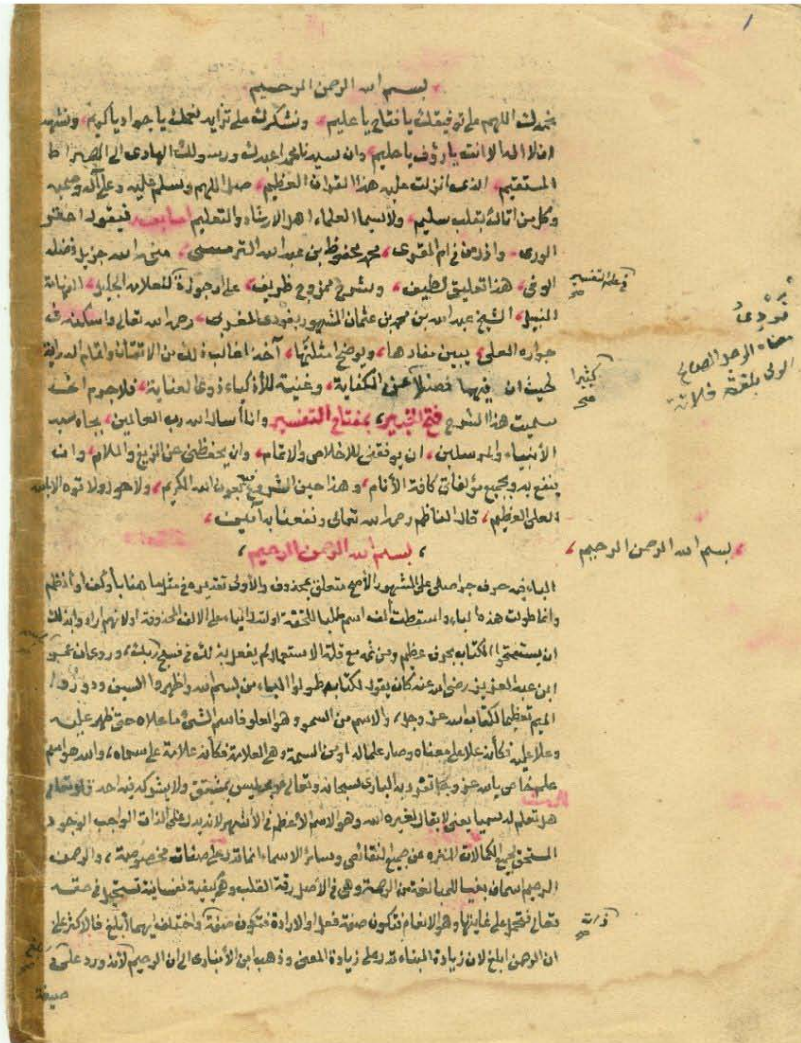 ١
بسم الله الرحمن الرحيم
نحمدك اللهم على توفيقك يا فتاح يا عليم، ونشكرك على تزايد نعمك يا جواد يا كريم، ونشهد
ان لا اله الا انت يا رؤف يا حليم، وان سيدنا محمدا عبدك ورسولك الهادى الى الصراط
المستقيم، الذى انزلت عليه هذا القرآن العظيم، صل اللهم وسلم عليه وعلى آله وصحبه
وكل من اتاك بقلب سليم، ولا سيما العلماء اهل الارشاد والتعليم اما بعد فيقول احقر
الورى، واذل من فى ام القرى، محمد محفوظ بن عبد الله الترمسى، منحه الله جزيل فضله
الوفى، هذا تعليق لطيف، وشرح ممزوج ظريف، على ارجوزة العلامة الجليل، الفهامة
فى علم التفسير صح
النبيل، الشيخ عبد الله بن محمد بن عثمان المشهور بفودى المغربى، رحمه الله تعالى واسكنه فى
جواره العلى، يبين مفادها، ويوضح امثلتها، آخذا غالب ذلك من الاتقان واتمام الدراية
فُوْدِىُ معناه الرجل الصالح الولى بلغة فلانة
لحيث ان فيهما فضلا عن الكفاية، وغنية للأذكياء ذوى العناية، فلا جرم انى
كثيرا صح
سميت هذا الشرح فتح الخبير، بمفتاح التفسير، وانا أسأل الله رب العالمين، بجاه سيد
الأنبياء والمرسلين، ان يوفقنى للاخلاص والاتمام، وان يحفظنى عن الزيغ والملام، وان
ينفع به وبجميع مؤلفاتى كافة الأنام، وهذا حين الشروع بعون الله الكريم، ولا حول ولا قوة الا بالله
العلى العظيم، قال الناظم رحمه الله تعالى ونفعنا به آمين،
، بسم الله الرحمن الرحيم،
، بسم الله الرحمن الرحيم،
الباء فيه حرف جر اصلى على المشهور الأصح متعلق بمحذوف والأولى تقديره فى مثل ما هنا بأؤلف او أنظم
وانما طولت هذه الباء واسقطت ألف اسم طلبا للخفة اولتدل الباء على الالف المحذوفة اولانهم ارادوا بذلك
ان يستفتحوا الكتاب بحرف عظيم ومن ثمه مع قلة الاستعمال لم يفعل ذلك فى فسبح ربك، وروى ان عمر
ابن عبد العزيز رضى الله عنه كان يقول لكتابه طولوا الباء من بسم الله واظهروا السين ودوروا
الميم تعظيما لكتاب الله عز وجل، والاسم من السمو وهو العلو فاسم الشئ ما علاه حتى ظهر عليه
وعلا عليه فكأنه علا على معناه وصار علما له او من السمة وهى العلامة فكأنه علامة على سماه، والله هو اسم
علم خاص بالله عز وجل تفرد به البارى سبحانه وتعالى ليس بمشتق ولا يشركه فيه احد قال تعالى
هل تعلم له سميا يعنى لا يقال لغيره الله وهو الاسم الاعظم فى الأشهر لأنه يدل على الذات الواجب الوجود
المستحق لجميع الكمالات المنزه عن جميع النقائص وسائر الاسماء انما تدل على صفات مخصوصة، والرحمن
الرحيم اسمان بنيا للمبالغة من الرحمة وهى فى الأصل رقة القلب وهى كيفية نفسانية تستحيل فى حقه
تعالى فتحمل على غايتها وهو الانعام فتكون صفة فعل او الارادة فتكون صفة واختلف ايهما أبلغ فالاكثر على
ذات صح
ان الرحمن ابلغ لان زيادة البناء تدل على زيادة المعنى وذهب ابن الأنبارى الى ان الرحيم لأنه ورد على
صيغة